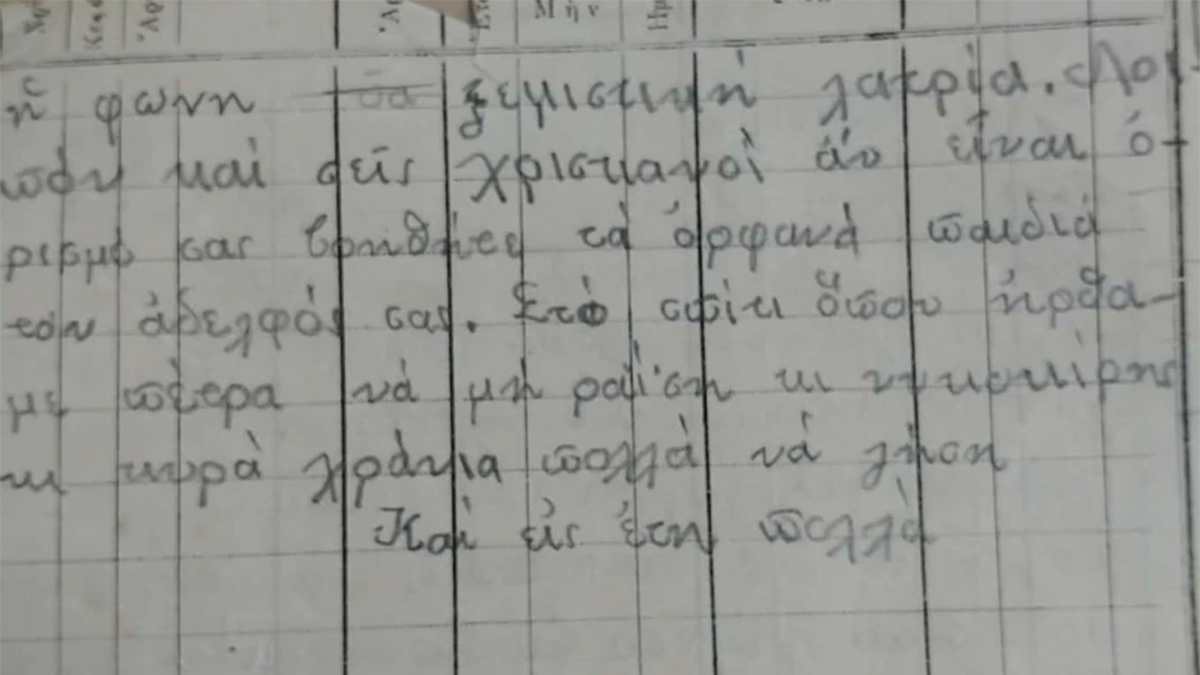 Μην
Ημ
ἡ φωνη σα ξεμιστικη λακρία. Λοι-
πόν και σεῖς Χριστιανοί ἀν είναι ὁ-
ρισμό σας βοηθῆσε τά ὀρφανά παιδιά
τον ἀδελφός σας. Στό σπίτι ὅπου ἠρθα-
με πέτρα νά μή ραΐση κι νυκοκίρης
κι κυρά χρόνια πολλά νά ζήση
Και εἰς ἔτη πολλά